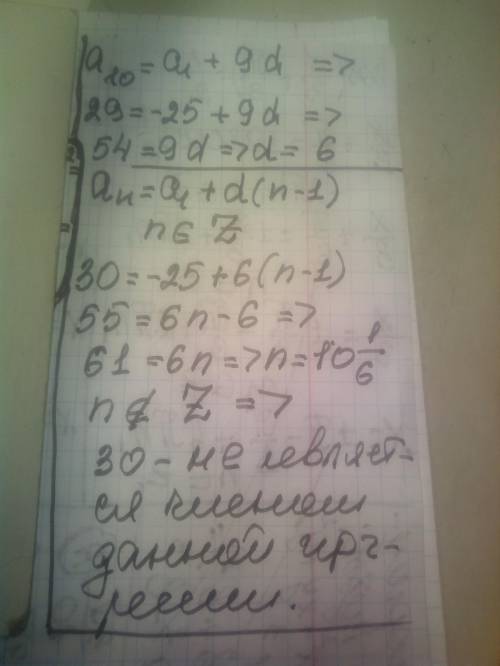 a₁₀ = a₁ + 9d =>
29 = -25 + 9d =>
54 = 9d => d = 6
aₙ = a₁ + d(n-1)
n ∈ Z
30 = -25 + 6(n-1)
55 = 6n - 6 =>
61 = 6n => n = 10 1/6
n ∉ Z =>
30 - не являет-
ся членом
данной прг-
рессии.